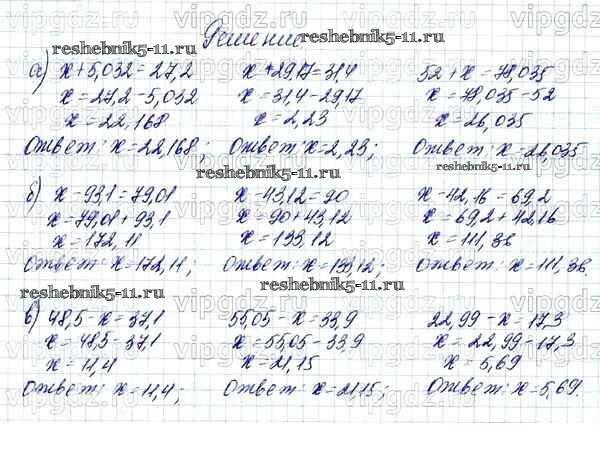 Решение
а) x + 5,032 = 27,2 x + 29,17 = 31,4 52 + x = 78,035
x = 27,2 - 5,032 x = 31,4 - 29,17 x = 78,035 - 52
x = 22,168 x = 2,23 x = 26,035
Ответ: x = 22,168; Ответ: x = 2,23; Ответ: x = 26,035
б) x - 93,1 = 79,01 x - 43,12 = 90 x - 42,16 = 69,2
x = 79,01 + 93,1 x = 90 + 43,12 x = 69,2 + 42,16
x = 172,11 x = 133,12 x = 111,36
Ответ: x = 172,11; Ответ: x = 133,12; Ответ: x = 111,36.
в) 48,5 - x = 37,1 55,05 - x = 33,9 22,99 - x = 17,3
x = 48,5 - 37,1 x = 55,05 - 33,9 x = 22,99 - 17,3
x = 11,4 x = 21,15 x = 5,69
Ответ: x = 11,4; Ответ: x = 21,15; Ответ: x = 5,69.
reshebnik5-11.ru
reshebnik5-11.ru
reshebnik5-11.ru
reshebnik5-11.ru
reshebnik5-11.ru
reshebnik5-11.ru
vipgdz.ru